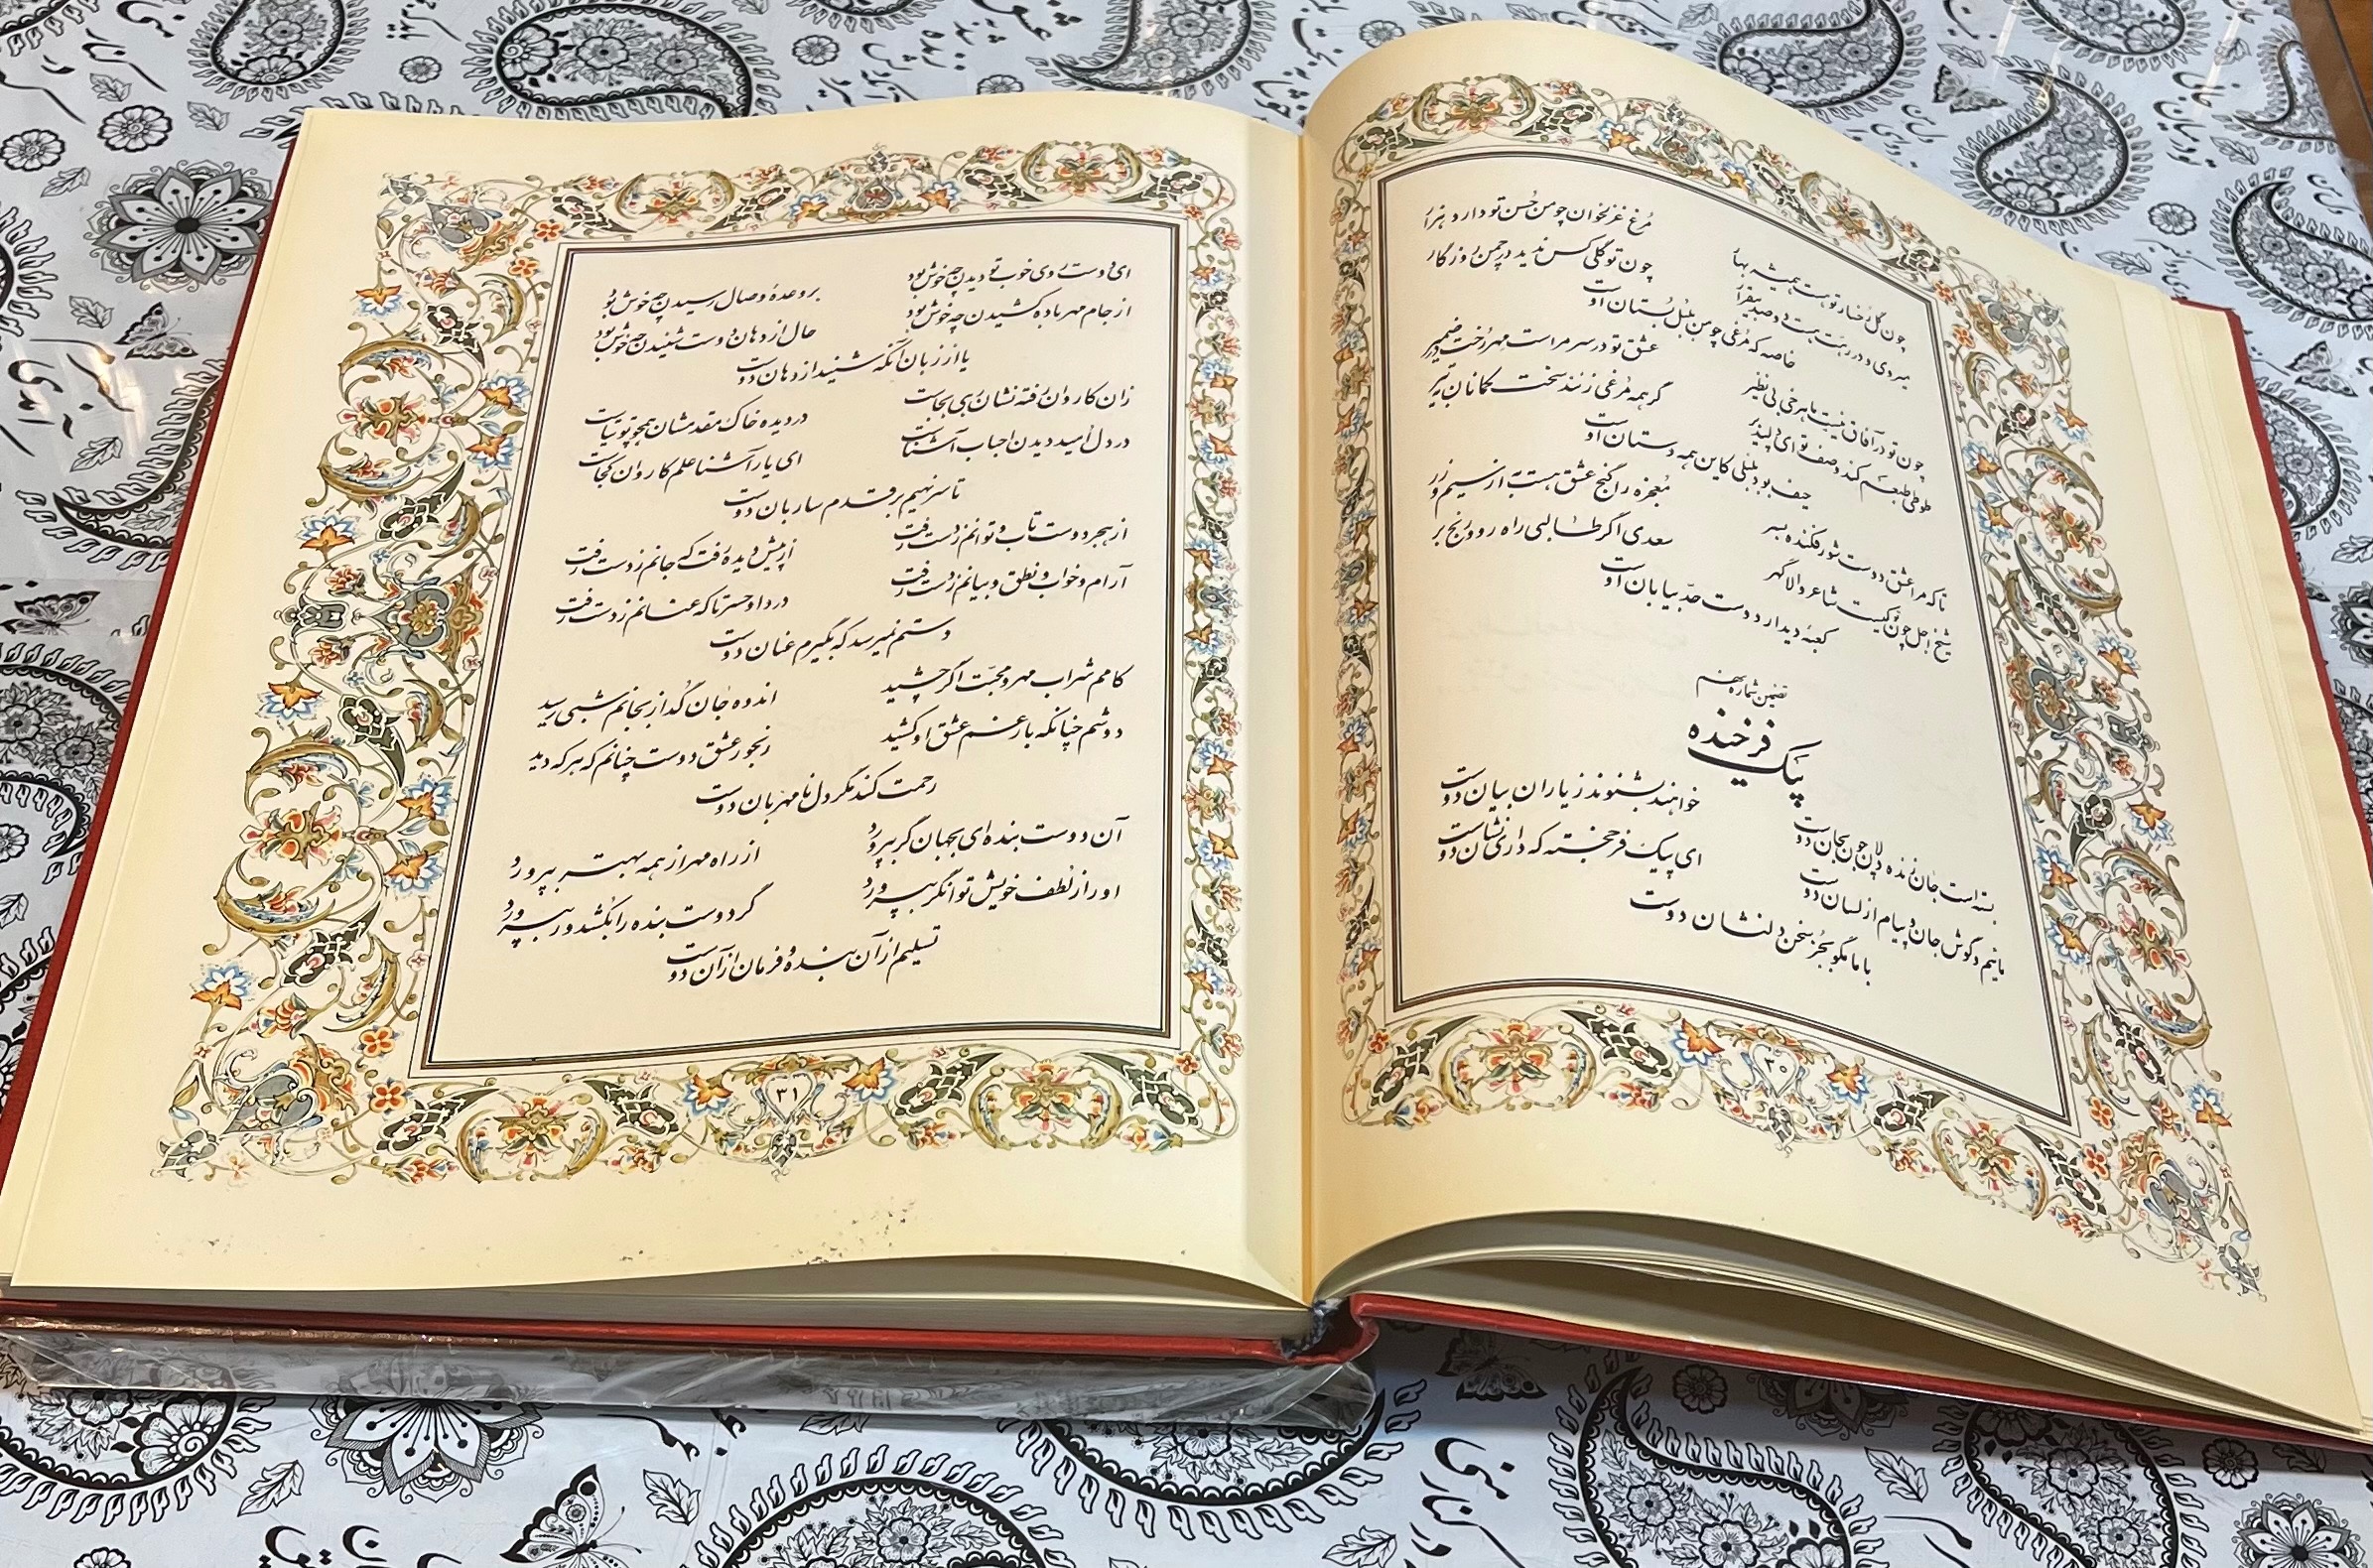 چون گل رخسار توست همیشه بهار
مرغ غزلخوان چو من حُسن تو دارد هزار
میروی و در رهت هست دو صد بیقرار
چون تو گلی کس ندید در چمن روزگار
خاصه که مُرغی چو من بلبل بُستان اوست
چون تو در آفاق نیست ماهرخی بی نظیر
عشق تو در سر مراست مهر رُخت در ضمیر
طوطی طبعم کند وصف تو ای دلپذیر
گر همه مُرغی زنند سخت کمانان به تیر
حیف بود بلبلی کاین همه دستان اوست
تا که مرا عشق دوست شور فکنده بسر
مُعجزه را گنج عشق هست به از سیم و زر
شیخ اجل چون تو کیست شاعر والا گهر
سعدی اگر طالبی راه رو و رنج بر
کعبهٔ دیدار دوست حدّ بیابان اوست
تضمین شماره پنجم
پیک فرخنده
بسته است جان زنده دلان چون بجان دوست
خواهند بشنوند ز یاران بیان دوست
مائیم و گوش جان و پیام از لسان دوست
ای پیک فرخجسته که داری نشان دوست
با ما مگو بجُز سخن دلنشان دوست
۳۰
ای دوست روی خوب تو دیدن چه خوش بود
بر وعدهٔ وصال رسیدن چه خوش بود
از جام مهر باده کشیدن چه خوش بود
حال از دهان دوست شنیدن چه خوش بود
یا از زبان آنکه شنید از دهان دوست
زان کاروان رفته نشان پی بجاست
در دیده خاک مقدمشان همچو توتیاست
در دل اُمید دیدن احباب آشناست
ای یار آشنا علم کاروان کجاست
تا سر نهیم بر قدم ساربان دوست
از هجر دوست تاب و توانم ز دست رفت
از پیش دیده رفت کسی جانم ز دست رفت
آرام و خواب و نطق و بیانم ز دست رفت
دردا و حسرتا که عنانم ز دست رفت
دستم نمیرسد که بگیرم عنان دوست
کامم شراب مهر و محبّت اگر چشید
اندوه جان گُداز بجانم شبی رسید
دوشم چنانکه بار غم عشق او کشید
رنجور عشق دوست چنانم که هر که دید
رحمت کند مگر دل نامهربان دوست
آن دوست بنده ای بجهان گر بپرورد
از راه مهر از همه بهتر بپرورد
او را ز لطف خویش توانگر بپرورد
گر دوست بنده را بکُشد ور بپرورد
تسلیم از آن بنده و فرمان از آن دوست
۳۱